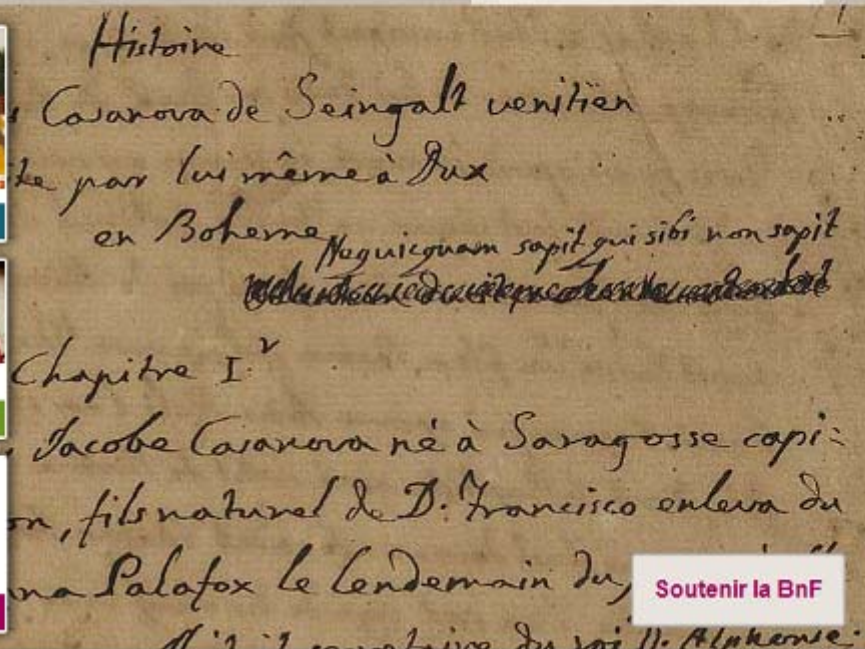 1
Histoire
Casanova de Seingalt venitïen
par lui même à Dux
en Boheme
Nequicquam sapit qui sibi non sapit
Chapitre I.r
Jacobe Casanova né à Saragosse capi=
on, fils naturel de D: Francisco enleva du
na Palafox le lendemain du
du roi D. Alphonse.
Soutenir la BnF